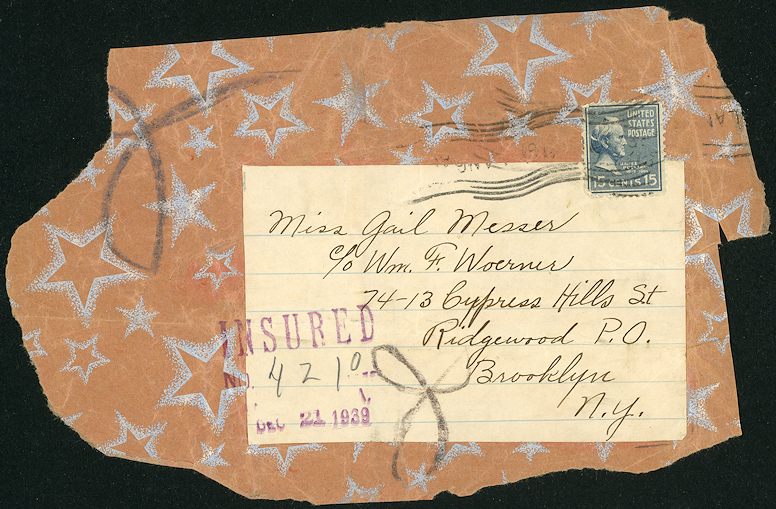 UNITED
STATES
POSTAGE
15 CENTS 15
Miss Gail Messer
c/o Wm. F. Woerner
74-13 Cypress Hills St
Ridgewood P.O.
Brooklyn
N.Y.
INSURED
No. 4210
DEC 21 1939